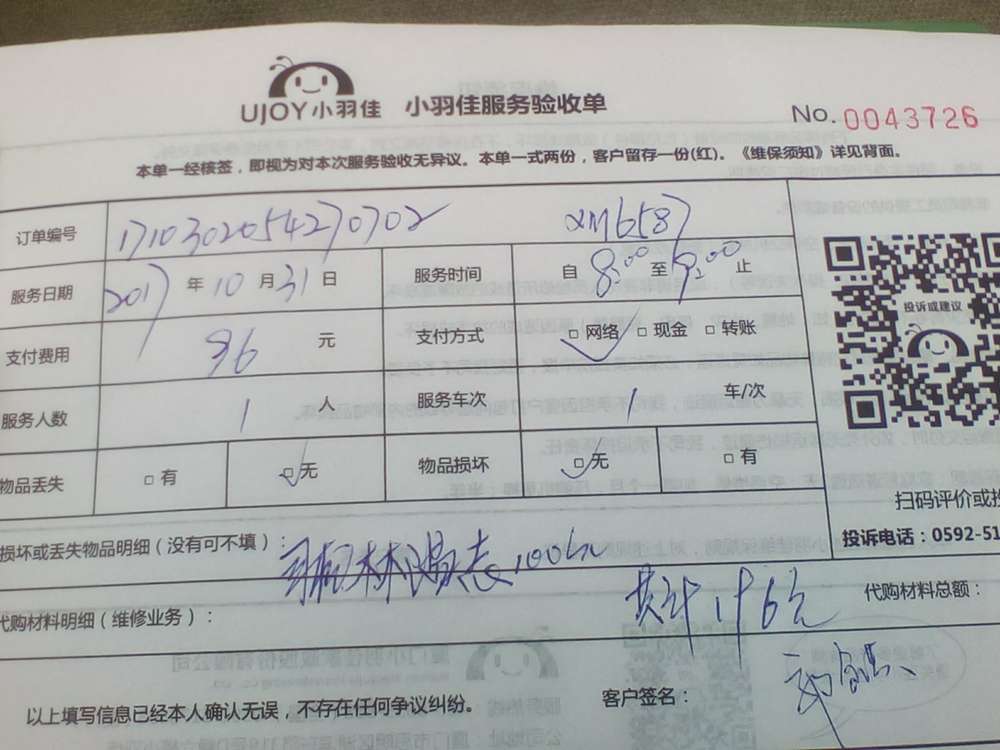 UJOY小羽佳 小羽佳服务验收单
No. 0043726
本单一经核签，即视为对本次服务验收无异议。本单一式两份，客户留存一份(红)。《维保须知》详见背面。
订单编号 1710302054270702 XM6587
服务日期 2017年10月31日 服务时间 自8:00至9:00止
投诉或建议
支付费用 96元 支付方式 □网络 □现金 □转账
服务人数 1人 服务车次 1车/次
物品丢失 □有 □无 物品损坏 □无 □有
扫码评价或投
损坏或丢失物品明细（没有可不填）：
投诉电话：0592-51
司机林 志
代购材料明细（维修业务）： 共计 代购材料总额：
以上填写信息已经本人确认无误，不存在任何争议纠纷。 客户签名：